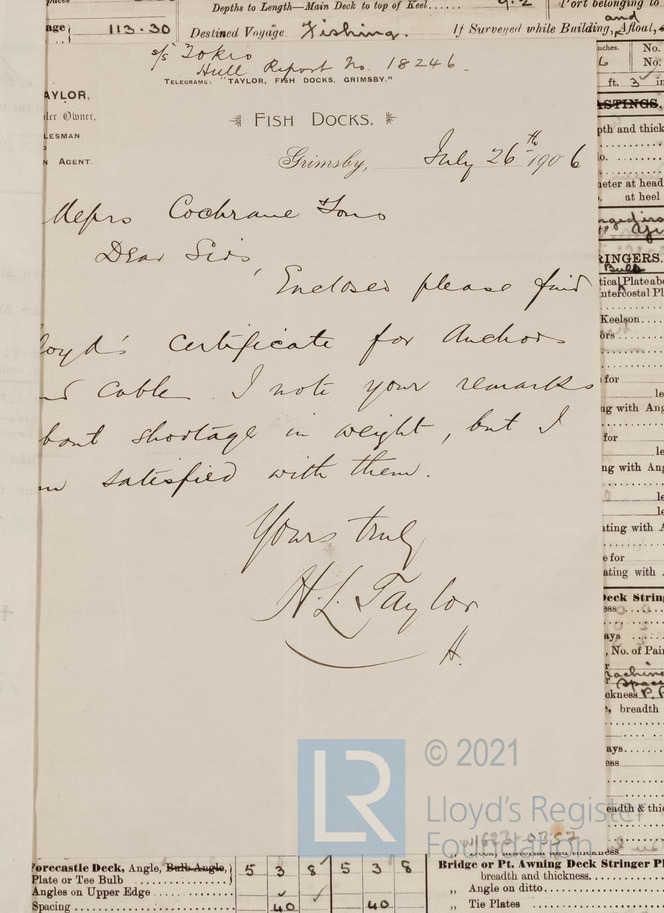 Depths to Length—Main Deck to top of Keel
9.2
Port belonging to
age 113.30
Destined Voyage Fishing.
If Surveyed while Building, Afloat,
and
s/s Tokio
Hull Report No. 18246.
TELEGRAMS: "TAYLOR, FISH DOCKS, GRIMSBY."
AYLOR,
ler Owner,
LESMAN
N AGENT.
FISH DOCKS,
Grimsby, July 26th 1906
Messrs Cochrane & Sons
Dear Sirs,
Enclosed please find
loyd's certificate for Anchors
nd cable. I note your remarks
bout shortage in weight, but I
m satisfied with them.
Yours truly
H. L. Taylor
H.
nches. No.
6 No.
ft. 3 in
ASTINGS,
pth and thick
o.
meter at head
at heel
RINGERS.
Bulb
tical Plate abe
Intercostal Pl
Keelson
ors
for
le
ng with Ang
for
le
ng with Ang
ating with A
e for
ating with
Deck String
ess
ays
, No. of Pai
ckness
, breadth
ays
ess
eadth & thic
LR © 2021
Lloyd's Register
Foundation
Forecastle Deck, Angle, Bulb Angle, 5 3 8 5 3 8
Plate or Tee Bulb
Angles on Upper Edge
Spacing 40 40
Bridge or Pt. Awning Deck Stringer Pl
breadth and thickness.
„ Angle on ditto
„ Tie Plates